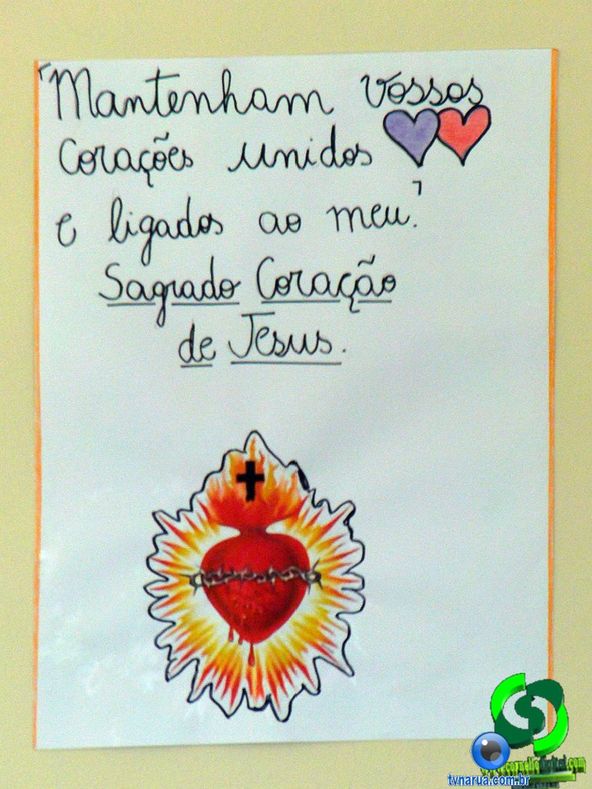 "Mantenham vossos
corações unidos
e ligados ao meu."
Sagrado Coração
de Jesus.
tvnarua.com.br